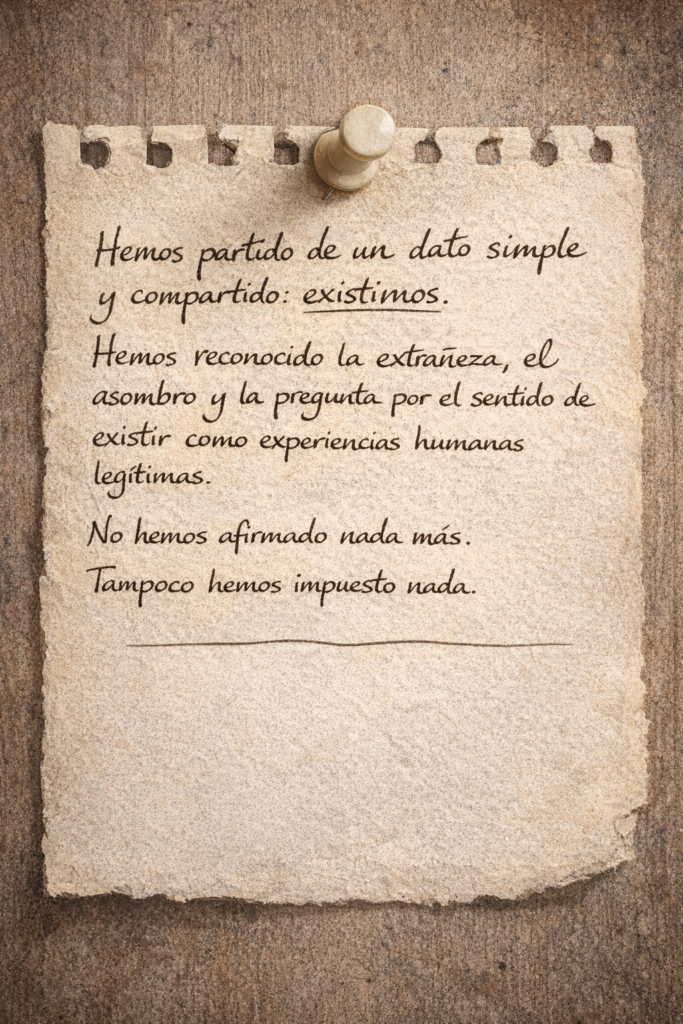 Hemos partido de un dato simple
y compartido: existimos.
Hemos reconocido la extrañeza, el
asombro y la pregunta por el sentido de
existir como experiencias humanas
legítimas.
No hemos afirmado nada más.
Tampoco hemos impuesto nada.